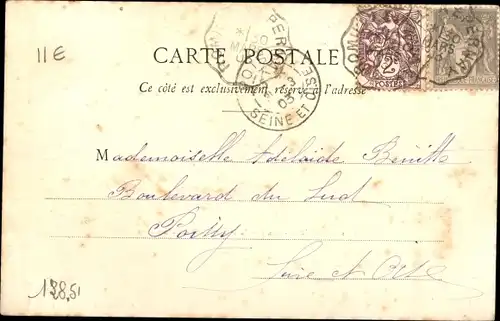 11E
CARTE POSTALE
Ce côté est exclusivement réservé à l'adresse
SEINE ET
03
2
POSTES
Mademoiselle Adélaide
Boulevard du Sud
Seine et Oise
1285